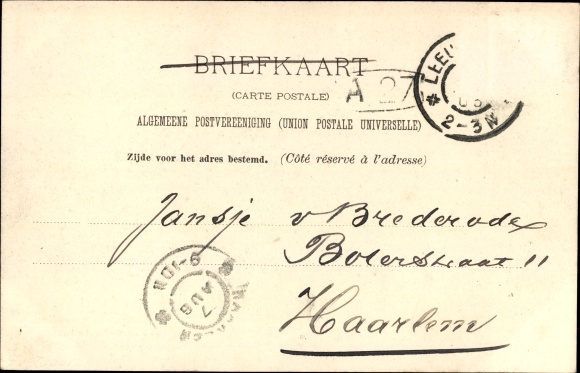 BRIEFKAART
(CARTE POSTALE)
A 27
ALGEMEENE POSTVEREENIGING (UNION POSTALE UNIVERSELLE)
Zijde voor het adres bestemd. (Côté réservé à l'adresse)
2-3N
Jansje v Brederode
Bolerstraat 11
Haarlem
9-10N
7
AUG